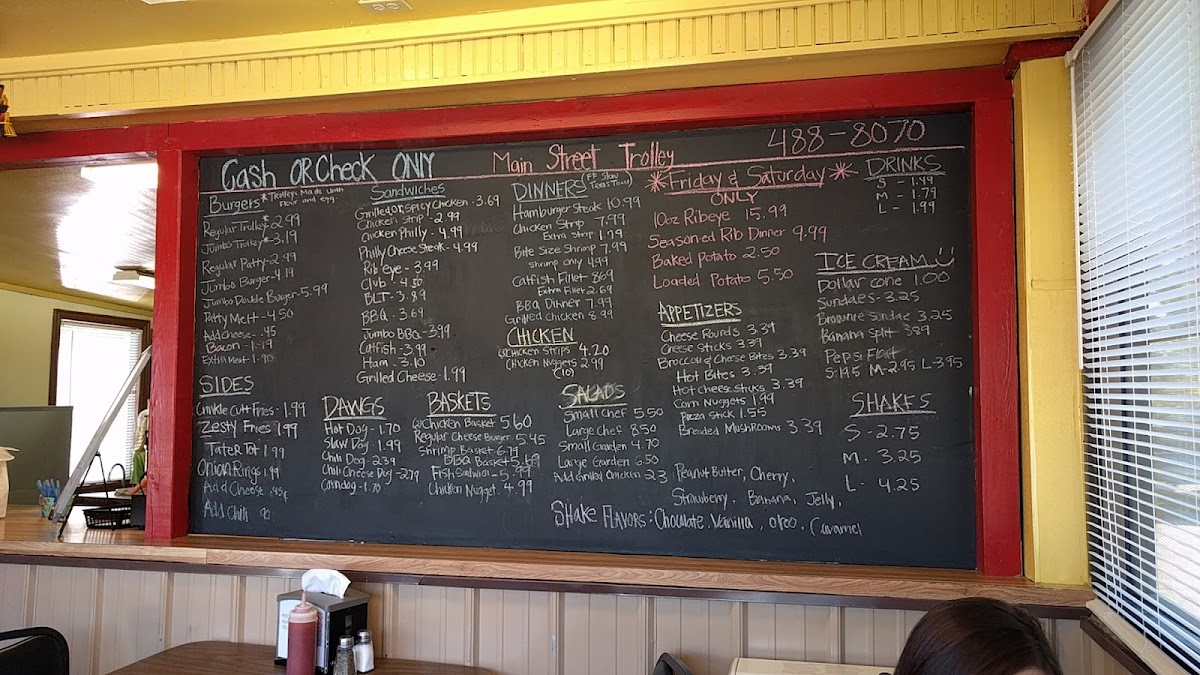 Cash OR Check ONLY
Main Street Trolley
488-8070
Burgers
*Trolleys Made with
Flour and egg.
Regular Trolley* 2.99
Jumbo Trolley* 3.19
Regular Patty - 2.99
Jumbo Burger - 4.19
Jumbo Double Burger - 5.99
Patty Melt - 4.50
Add Cheese - .45
Bacon - 1.99
Extra Meat - 1.90
SIDES
Crinkle Cut Fries - 1.99
Zesty Fries 1.99
Tater Tot 1.99
Onion Rings 1.99
Add Cheese .45¢
Add Chili 90
Sandwiches
Grilled or Spicy Chicken - 3.69
Chicken Strip - 2.99
Chicken Philly - 4.99
Philly Cheese Steak - 4.99
Rib eye - 3.99
Club - 4.50
BLT - 3.89
BBQ - 3.69
Jumbo BBQ - 3.99
Catfish - 3.99
Ham - 3.10
Grilled Cheese - 1.99
DAWGS
Hot Dog - 1.70
Slaw Dog - 1.99
Chili Dog - 2.39
Chili Cheese Dog - 2.79
Corndog - 1.70
BASKETS
Chicken Basket 5.60
Regular Cheese Burger 5.45
Shrimp Basket 6.79
BBQ Basket 5.69
Fish Sandwich - 5.99
Chicken Nugget. 4.99
DINNERS (FF Slaw
Texas Toast)
Hamburger Steak 10.99
Chicken Strip 7.99
Extra Strip 1.79
Bite Size Shrimp 7.99
Shrimp only 4.99
Catfish Fillet 8.69
Extra Fillet 2.69
BBQ Dinner 7.99
Grilled Chicken 8.99
CHICKEN
Chicken Strips 4.20
Chicken Nuggets 2.99
(10)
SALADS
Small Chef 5.50
Large Chef 8.50
Small Garden 4.70
Large Garden 6.50
Add Grilled Chicken 2.3
*Friday & Saturday*
ONLY
10oz Ribeye 15.99
Seasoned Rib Dinner 9.99
Baked Potato 2.50
Loaded Potato 5.50
APPETIZERS
Cheese Rounds 3.39
Cheese Sticks 3.39
Broccoli & Cheese Bites 3.39
Hot Bites 3.39
Hot Cheese Sticks 3.39
Corn Nuggets 1.99
Pizza Stick 1.55
Breaded Mushrooms 3.39
DRINKS
S - 1.49
M - 1.79
L - 1.99
ICE CREAM
Dollar cone 1.00
Sundaes - 3.25
Brownie Sundae 3.25
Banana Split 3.89
Pepsi Float
S-1.95 M-2.95 L-3.95
SHAKES
S - 2.75
M. 3.25
L - 4.25
Peanut Butter, Cherry,
Strawberry, Banana, Jelly,
Shake Flavors: Chocolate, Vanilla, oreo, Caramel